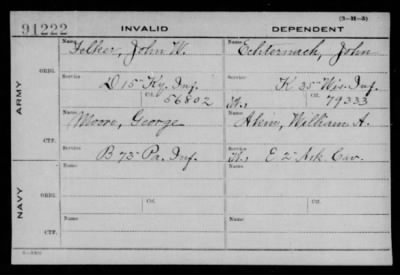 (3-H-5)
91222 INVALID DEPENDENT
ARMY
ORIG.
Name Felker, John W. Name Echternach, John
Service D 15 Ky. Inf. Service K 35 Wis. Inf.
Ctf. 56802 W. Ctf. 79333
CTF.
Name Moore, George Name Akin, William A.
Service B 75 Pa. Inf. Service W. E 2 Ark. Cav.
NAVY
ORIG.
Name Name
Service Ctf. Service Ctf.
CTF.
Name Name